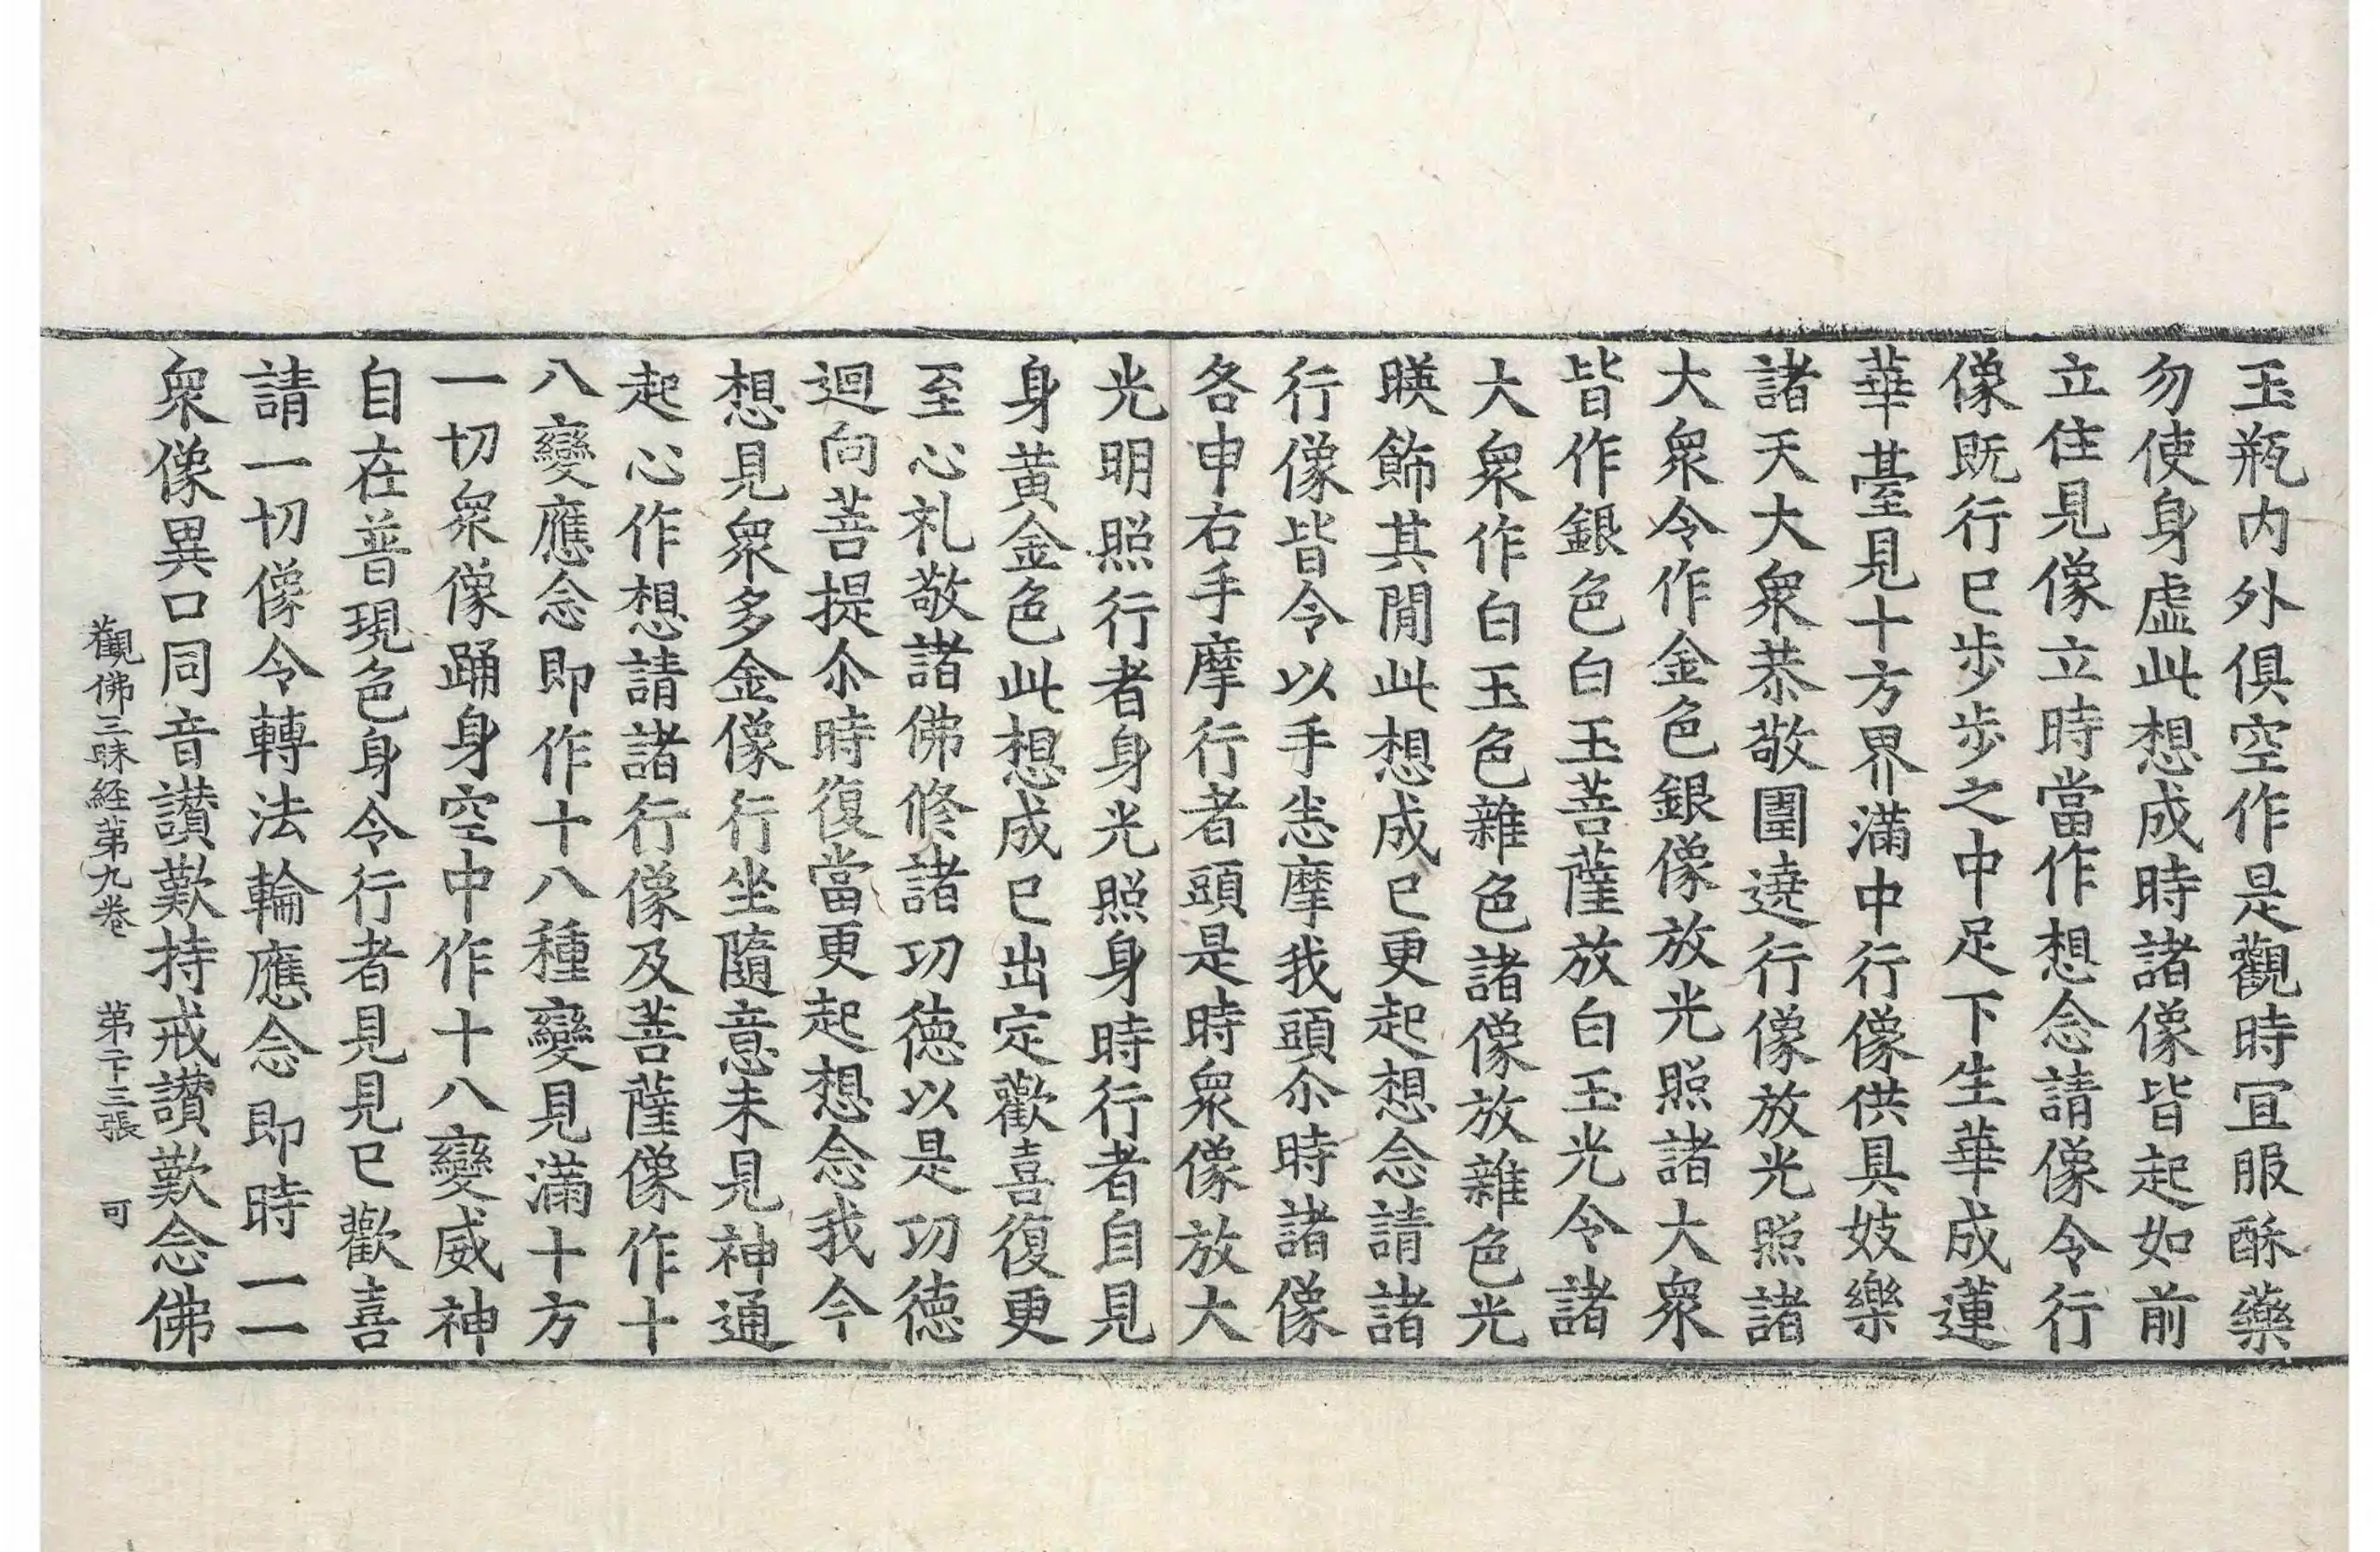 玉瓶内外俱空作是觀時冝服酥藥
勿使身虛此想成時諸像皆起如前
立住見像立時當作想念請像令行
像既行已步步之中足下生華成蓮
華臺見十方界滿中行像供具妓樂
諸天大衆恭敬圍遶行像放光照諸
大衆令作金色銀像放光照諸大衆
皆作銀色白玉菩薩放白玉光令諸
大衆作白玉色雜色諸像放雜色光
暎飾其間此想成已更起想念請諸
行像皆令以手悉摩我頭尒時諸像
各申右手摩行者頭是時衆像放大
光明照行者身光照身時行者自見
身黄金色此想成已出定歡喜復更
至心礼敬諸佛修諸功德以是功德
迴向菩提尒時復當更起想念我今
想見衆多金像行坐隨意未見神通
起心作想請諸行像及菩薩像作十
八變應念即作十八種變見滿十方
一切衆像踊身空中作十八變威神
自在普現色身令行者見見已歡喜
請一切像令轉法輪應念即時一一
衆像異口同音讃歎持戒讃歎念佛
觀佛三昧経苐九卷　苐二十三張　可